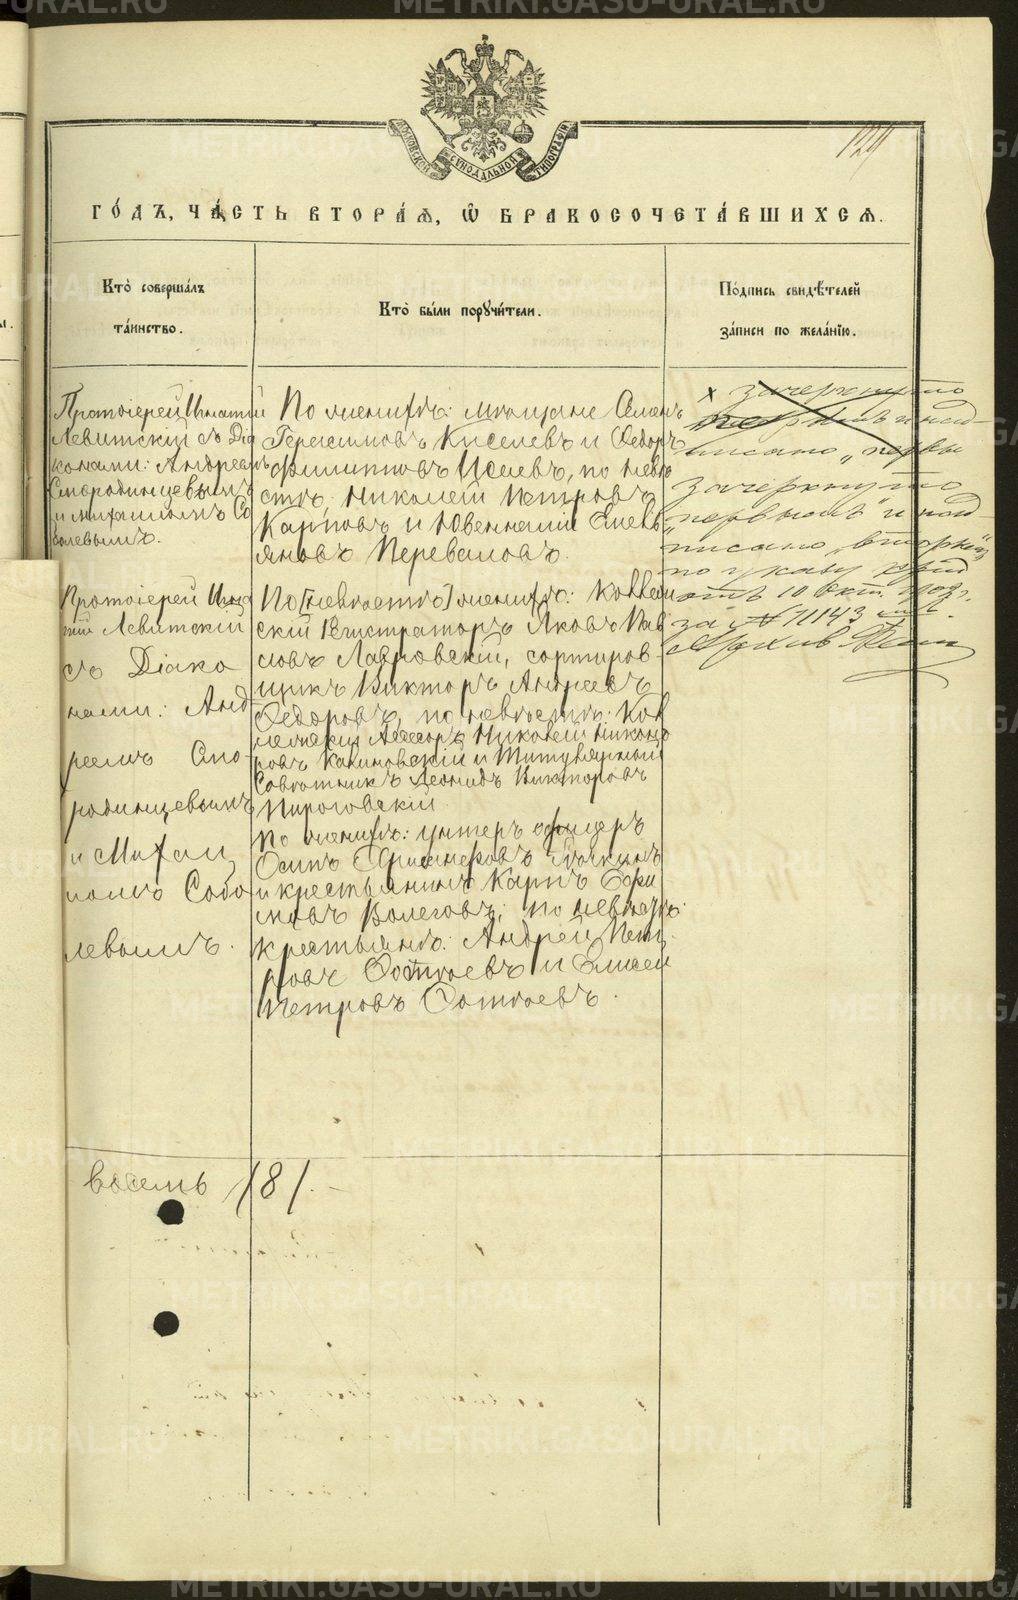 124
МОСКОВСКОЙ СѴНОДАЛЬНОЙ ТИПОГРАФІИ
ГО́ДЪ, ЧА́СТЬ ВТОРА́Ѧ, Ѽ БРАКОСОЧЕТА́ВШИХСѦ.
Кто̀ соверша́лъ
та́инство.
Кто̀ бы́ли порꙋчи́тели.
По́дпись свидѣ́телей
за́писи по жела́нїю.
Протоіерей Игнатій
Левитскій съ Діа
конами: Андреемъ
Смородинцевымъ
и Михаиломъ Со
болевымъ.
По женихѣ: мѣщане Семенъ
Герасимовъ Киселевъ и Ѳедоръ
Филипповъ Исаевъ, по невѣ
стѣ: Николай Петровъ
Карповъ и Ювеналій Емель
яновъ Переваловъ.
х зачеркнуто
и над
писано „первы
зачеркнуто
„первымъ" и над
писано „вторымъ"
по указу
отъ 10 Окт. 1902 г.
за № 11143
Протоіерей Игна
тій Левитскій
съ Діако
нами: Анд
реемъ Смо
родинцевымъ
и Михаи
ломъ Собо
левымъ.
По [невѣстѣ] женихѣ: Коллеж
скій Регистраторъ Яковъ Пав
ловъ Лавровскій, сортиров
щикъ Викторъ Андреевъ
Ѳедоровъ, по невѣстѣ: Кол
лежскій Ассесоръ Николай Никано
ровъ Калиновскій и Титулярный
Совѣтникъ Леонидъ Викторовъ
Пироговскій.
По женихѣ: унтеръ офицеръ
Осипъ
и крестьянинъ Карпъ Ефи
мовъ Волеговъ; по невѣстѣ:
крестьяне: Андрей Пет
ровъ и Елисей
Петровъ
восемь /8/. –